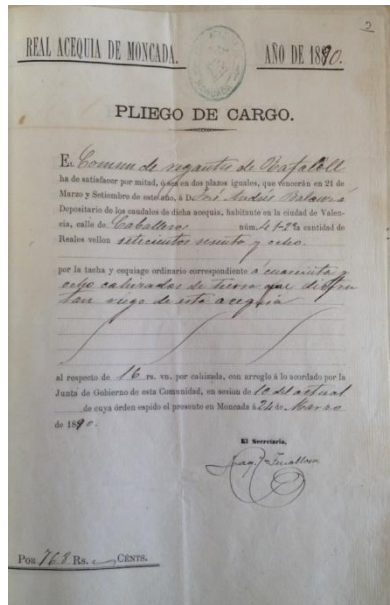 2
REAL ACEQUIA DE MONCADA. AÑO DE 1890.
PLIEGO DE CARGO.
El Comun de regantes de Rafalell
ha de satisfacer por mitad, ó sea en dos plazos iguales, que vencerán en 21 de
Marzo y Setiembre de este año, á D. José
Depositario de los caudales de dicha acequia, habitante en la ciudad de Valen-
cia, calle de Caballeros núm. cantidad de
Reales vellon setecientos sesenta y ocho
por la tacha y cequiage ordinario correspondiente á cuarenta y
ocho cahizadas de tierra que disfru
tan riego de esta acequia
al respecto de 16 rs. vn. por cahizada, con arreglo á lo acordado por la
Junta de Gobierno de esta Comunidad, en sesion de 10 del actual
de cuya órden espido el presente en Moncada á 24 de Marzo
de 1890.
El Secretario,
Por 768 Rs. Cénts.